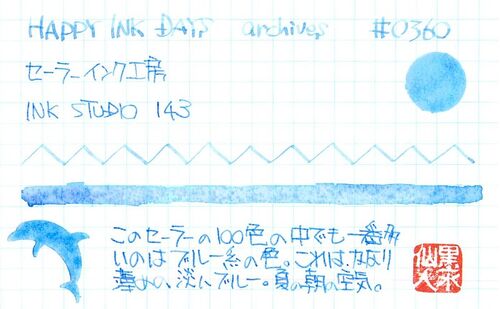 HAPPY INK DAYS archives #0360
セーラーインク工房
INK STUDIO 143
このセーラーの100色の中でも一番多
いのはブルー系の色。これは、かなり
薄めの、淡いブルー。夏の朝の空気。
仙人